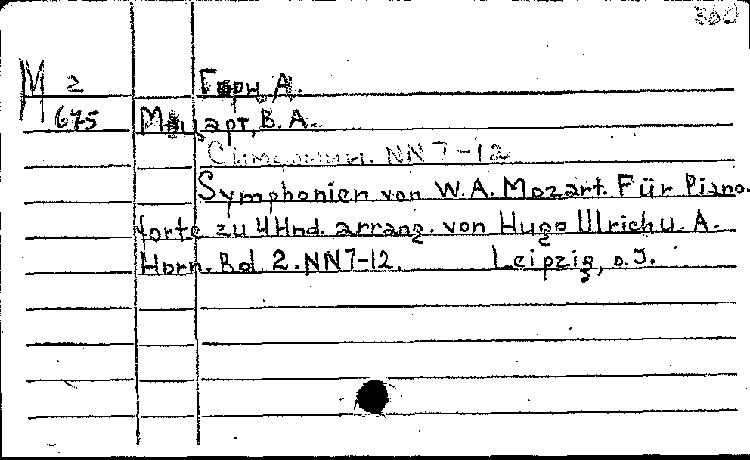 360
M 2 Горн, А.
675 Моцарт, В. А.
Симфонии. NN 7-12
Symphonien von W. A. Mozart. Für Piano-
forte zu 4 Hnd. arrang. von Hugo Ulrich u. A.
Horn. Bd. 2. NN 7-12. Leipzig, o. J.